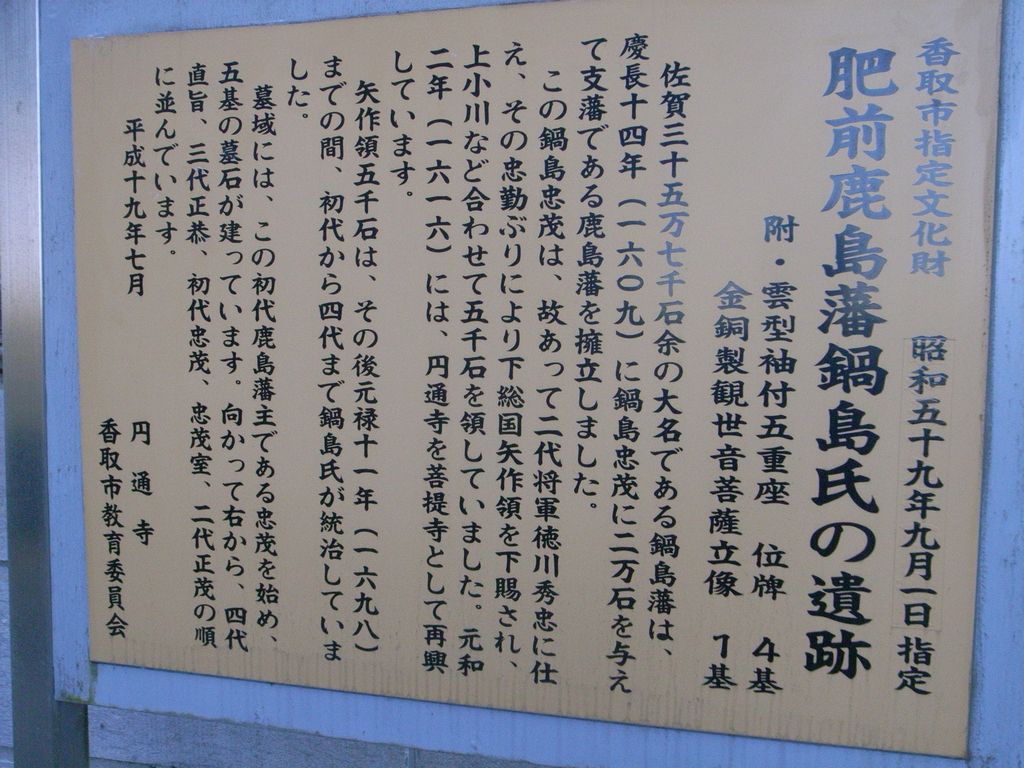 香取市指定文化財　昭和五十九年九月一日 指定
肥前鹿島藩鍋島氏の遺跡
附・雲型袖付五重座　位牌　4基
金銅製観世音菩薩立像　1基
佐賀三十五万七千石余の大名である鍋島藩は、
慶長十四年（一六〇九）に鍋島忠茂に二万石を与え
て支藩である鹿島藩を擁立しました。
この鍋島忠茂は、故あって二代将軍徳川秀忠に仕
え、その忠勤ぶりにより下総国矢作領を下賜され、
上小川など合わせて五千石を領していました。元和
二年（一六一六）には、円通寺を菩提寺として再興
しています。
矢作領五千石は、その後元禄十一年（一六九八）
までの間、初代から四代まで鍋島氏が統治していま
した。
墓域には、この初代鹿島藩主である忠茂を始め、
五基の墓石が建っています。向かって右から、四代
直旨、三代正恭、初代忠茂、忠茂室、二代正茂の順
に並んでいます。
平成十九年七月
円通寺
香取市教育委員会